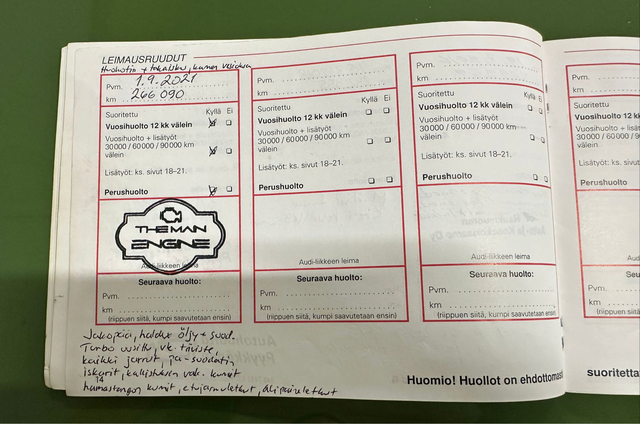 LEIMAUSRUUDUT
Huohotin + takaisku, kannen
Pvm. 1.9.2021
km 266 090
Suoritettu Kyllä Ei
Vuosihuolto 12 kk välein
Vuosihuolto + lisätyöt
30000 / 60000 / 90000 km
välein
Lisätyöt: ks. sivut 18–21.
Perushuolto
THE MAIN
ENGINE
Audi-liikkeen leima
Seuraava huolto:
Pvm.
km
(riippuen siitä, kumpi saavutetaan ensin)
Jakopää, öljy + suod.
Turbo uusittu, vk. tiiviste,
kaikki jarrut, pa-suodatin
iskarit, vak. kumit
14
kumit,
Pvm.
km
Suoritettu Kyllä Ei
Vuosihuolto 12 kk välein
Vuosihuolto + lisätyöt
30000 / 60000 / 90000 km
välein
Lisätyöt: ks. sivut 18–21.
Perushuolto
Audi-liikkeen leima
Seuraava huolto:
Pvm.
km
(riippuen siitä, kumpi saavutetaan ensin)
Pvm.
km
Suoritettu Kyllä Ei
Vuosihuolto 12 kk välein
Vuosihuolto + lisätyöt
30000 / 60000 / 90000 km
välein
Lisätyöt: ks. sivut 18–21.
Perushuolto
Audi-liikkeen leima
Seuraava huolto:
Pvm.
km
(riippuen siitä, kumpi saavutetaan ensin)
Huomio! Huollot on ehdottomas
Pvm.
km
Suoritettu
Vuosihuo
Vuosihuolto
30000 / 60
välein
Lisätyöt: ks
Perushuol
Se
Pvm.
km
(riippuen
suoritetta